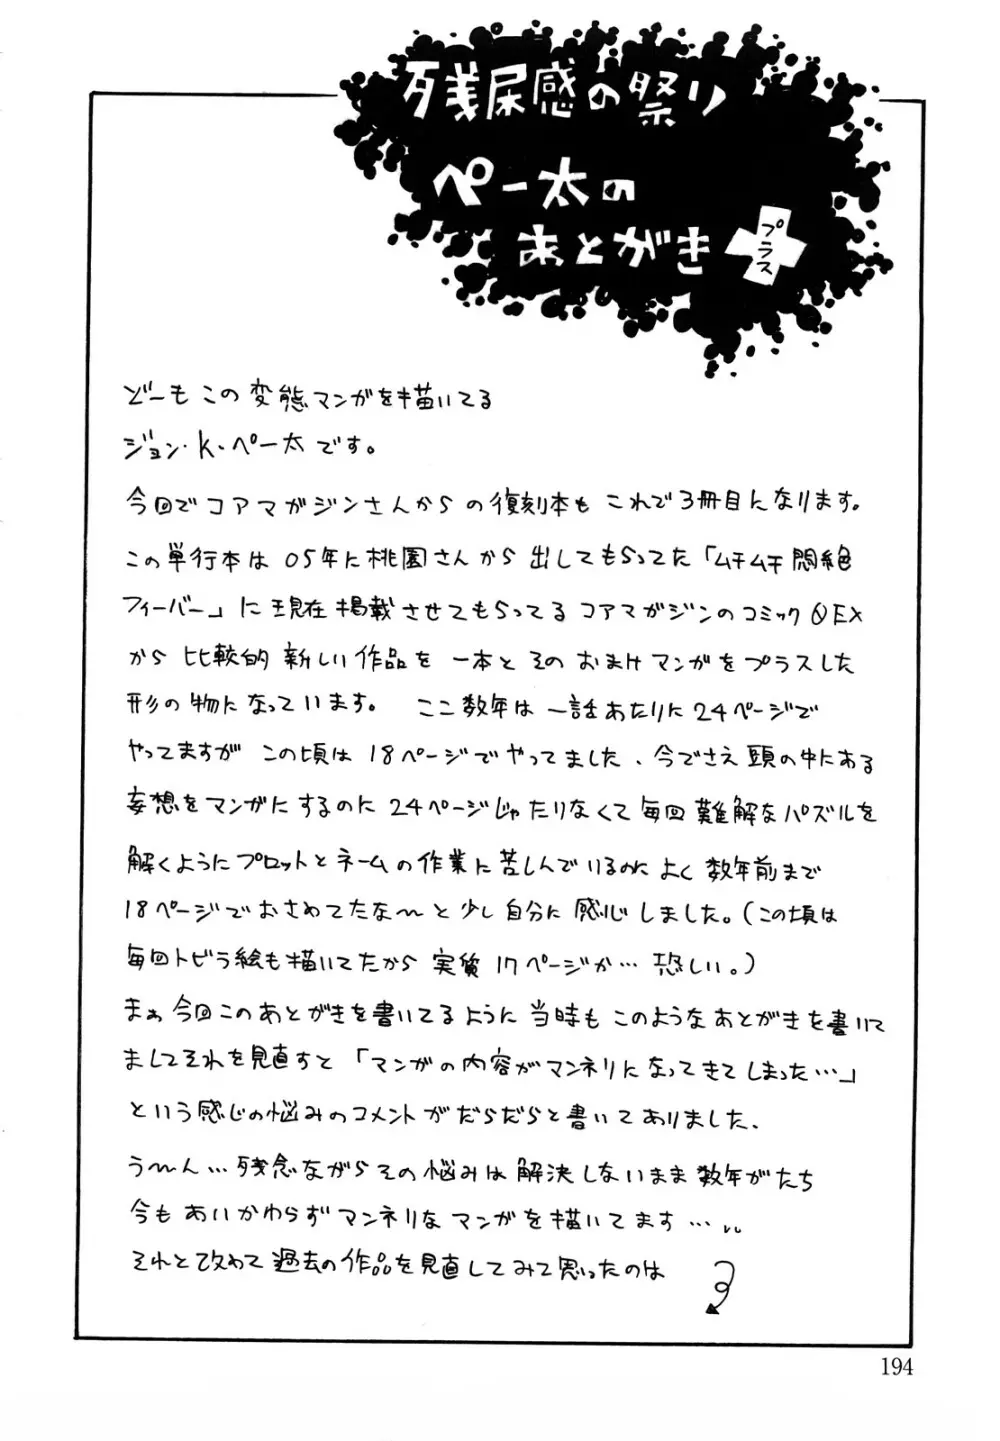 残尿感の祭り
ペー太の
あとがき
プラス
どーも この 変態マンガを描いてる
ジョン・K・ペー太です。
今回でコアマガジンさんからの復刻本も これで3冊目になります。
この単行本は 05年に桃園さんから 出してもらってた「ムチムチ悶絶
フィーバー」に 現在 掲載させてもらってる コアマガジンのコミック0EX
から 比較的 新しい 作品を 一本と そのおまけマンガをプラスした
形の物になっています。 ここ数年は 一話あたりに24ページで
やってますが この頃は 18ページでやってました、今でさえ頭の中にある
妄想をマンガにするのに 24ページじゃたりなくて毎回 難解なパズルを
解くようにプロットとネームの作業に苦しんでいるのに よく 数年前まで
18ページでおさめてたな〜と少し自分に感心しました。(この頃は
毎回トビラ絵も描いてたから 実質 17ページか… 恐しい。)
まぁ今回このあとがきを書いてるように当時もこのようなあとがきを書いて
ましてそれを見直すと「マンガの内容がマンネリになってきてしまった…」
という感じの悩みのコメントがだらだらと書いてありました、
う〜ん…残念ながらその悩みは解決しないまま数年がたち
今もあいかわらずマンネリなマンガを描いてます…
それと改めて過去の作品を見直してみて思ったのは
194